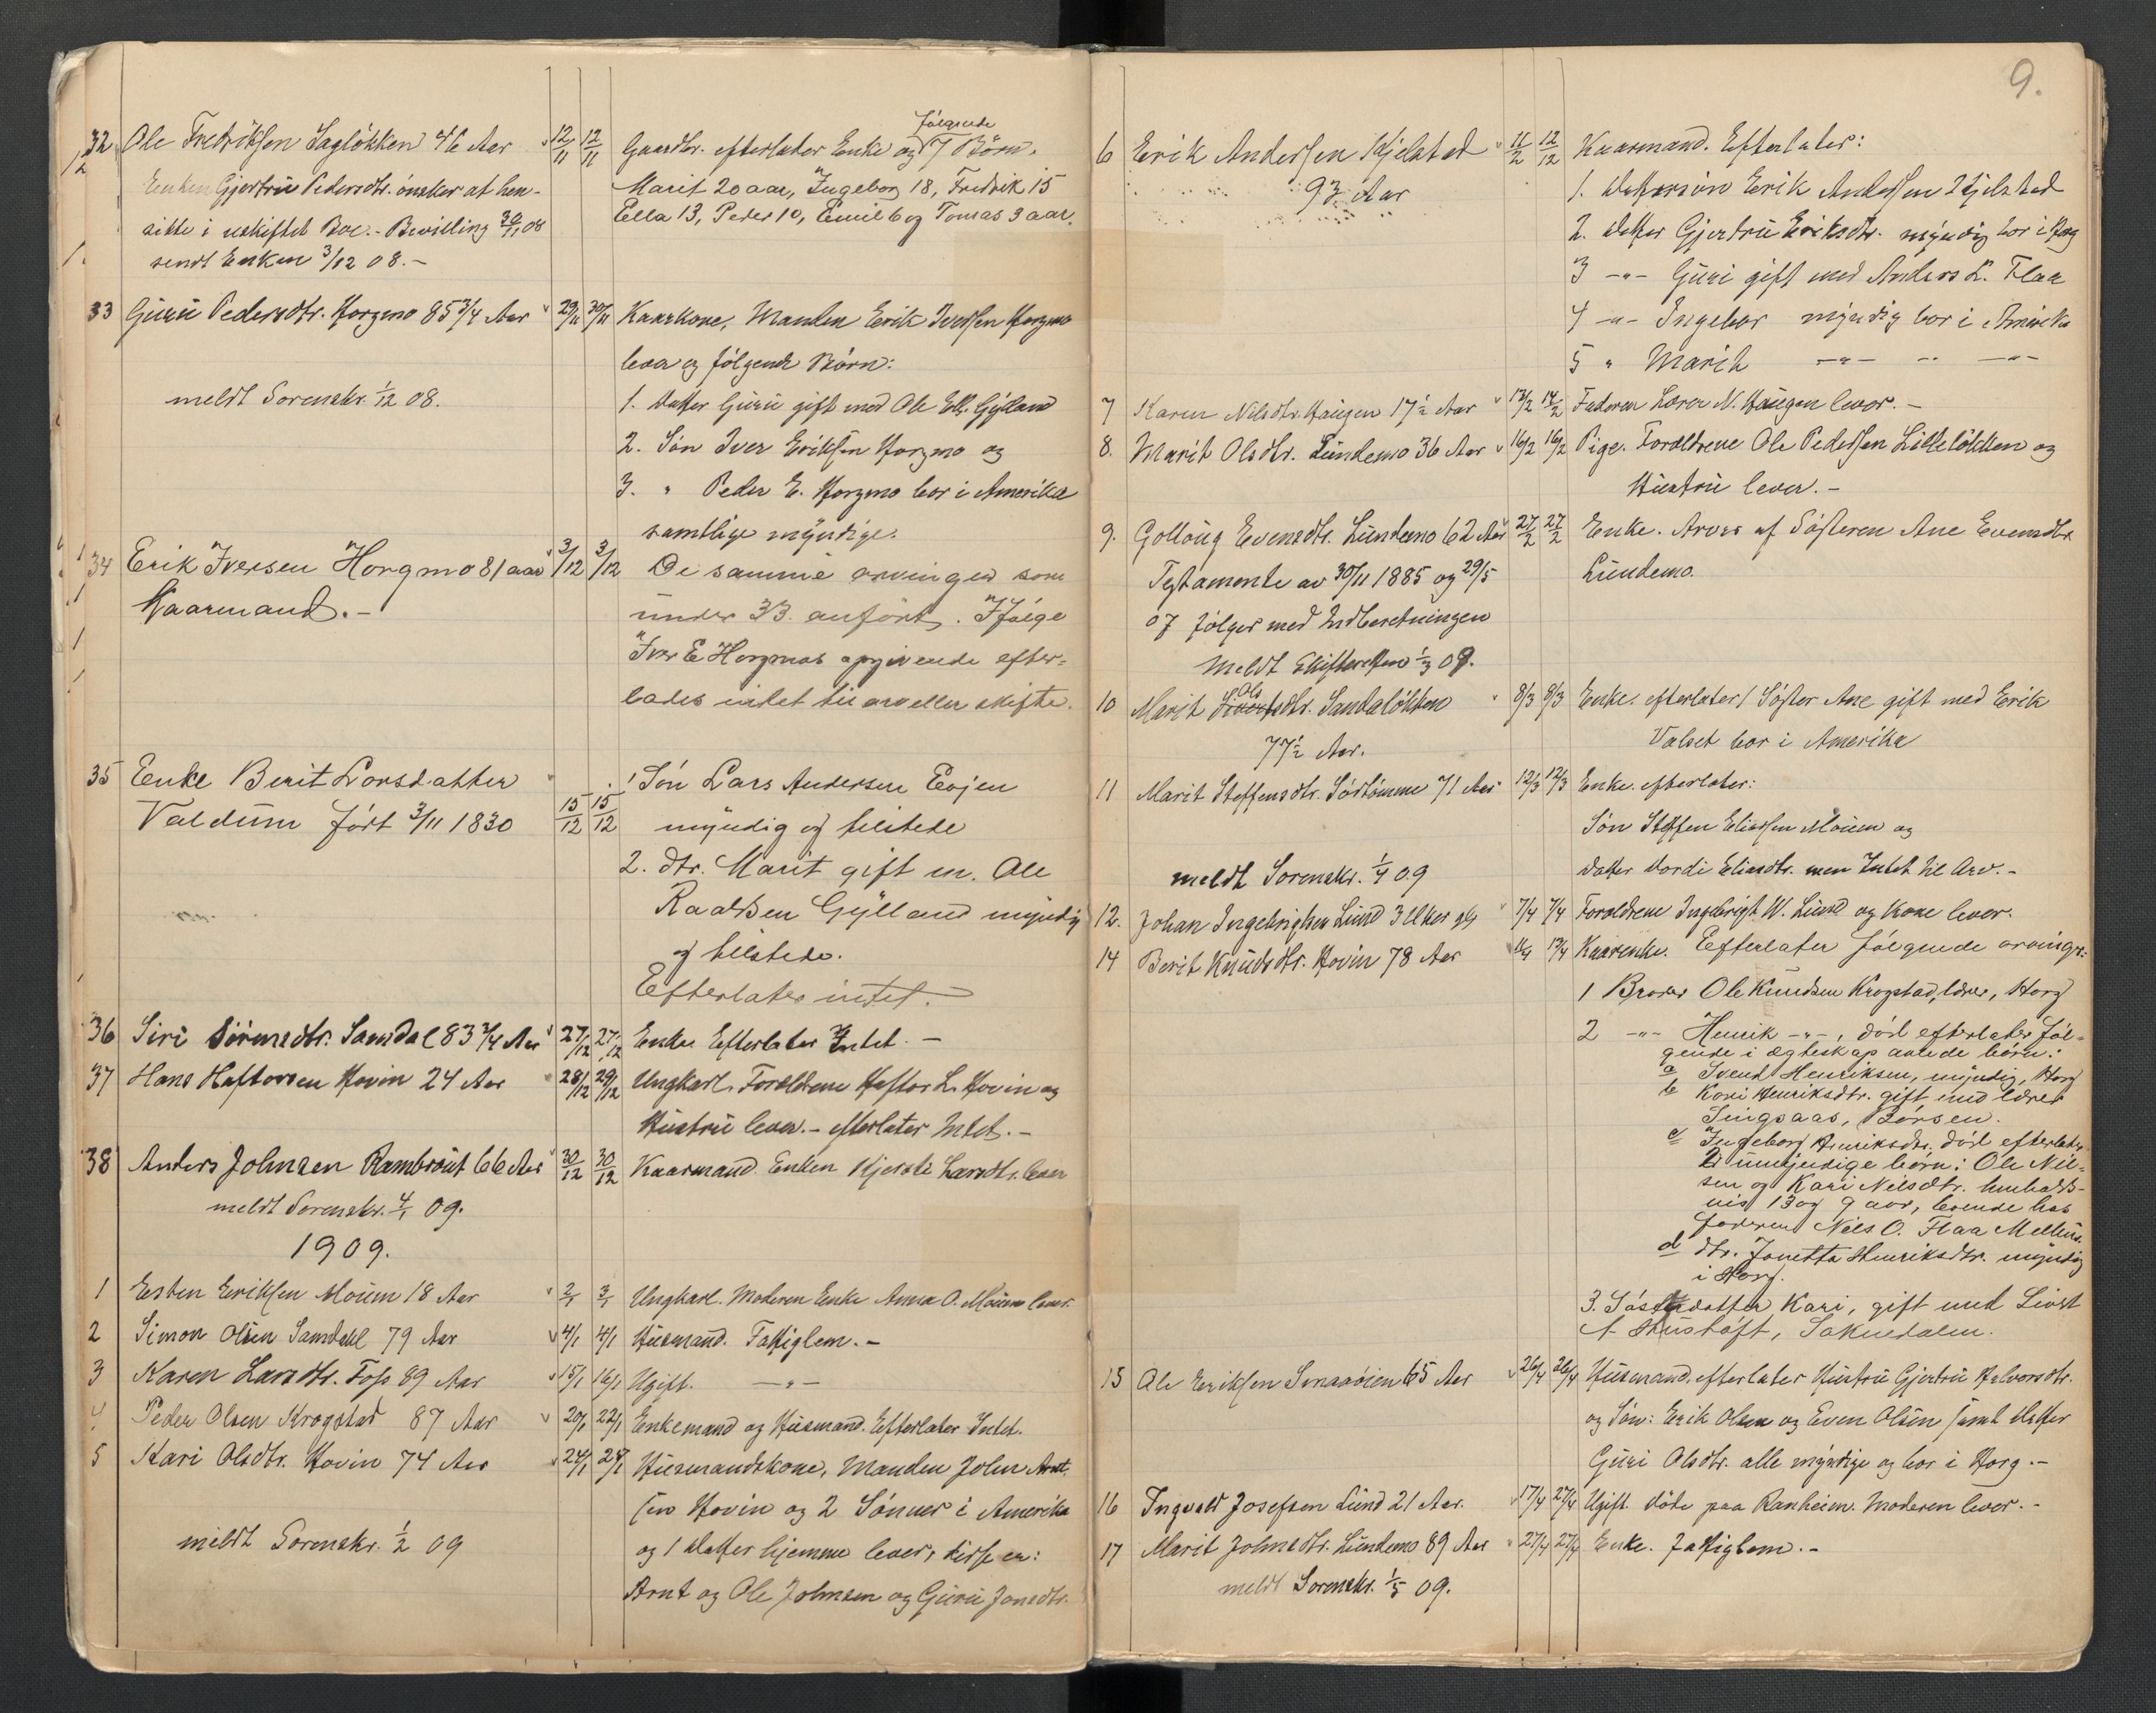 32 Ole Fredriksen Sagløkken 46 Aar 12/11 12/11 Gaardbr. efterlader Enke og følgende 7 Børn.
Enken Gjertru Pedersdtr. ønsker at hen- Marit 20 aar, Ingeborg 18, Fredrik 15
sitte i uskiftet Boe. - Bevilling 30/11 08 Ella 13, Peder 10, Emil 6 og Tomas 3 aar.
sendt Enken 3/12 08. -
33 Guru Pedersdtr. Horgmo 85 3/4 Aar 29/11 30/11 Kaarkone, Manden Erik Iversen Horgmo
lever og følgende Børn:
meldt Sorenskr. 1/12 08. 1. Datter Guru gift med Ole Ell. Gylland
2. Søn Iver Eriksen Horgmo og
3. " Peder E. Horgmo bor i Amerika
samtlige myndige.
34 Erik Iversen Horgmo 81 aar 3/12 3/12 De samme arvinger som
Kaarmand. - under 33 anført. Ifølge
Iver E Horgmos opgivende efter-
lades intet til arv eller skifte.
35 Enke Berit Larsdatter 1 Søn Lars Andersen Evjen
Valdum født 3/11 1830 15/12 15/12 myndig og tilstede
2. dtr. Marit gift m. Ole
Gylland myndig
og tilstede.
Efterlater intet. -
36 Siri Sørensdtr. Samdal 83 3/4 Aar 27/12 27/12 Enke Efterlater Intet. -
37 Hans Haftorsen Hovin 24 Aar 28/12 29/12 Ungkarl. Forældrene Haftor L. Hovin og
Hustru lever. - efterlater Intet. -
38 Anders Johnsen Rambraut 66 Aar 30/12 30/12 Kaarmand Enken Kjersti Larsdtr. lever
meldt Sorenskr. 4/1 09.
1909.
1 Esten Eriksen Mouen 18 Aar 2/1 3/1 Ungkarl. Moderen Enke Anna O. Mouen lever.
2 Simon Olsen Samdahl 79 Aar 4/1 4/1 Husmand. Fattiglem. -
3 Karen Larsdtr. Foss 89 Aar 15/1 16/1 Ugift. -"-
4 Peder Olsen Krogstad 87 Aar 20/1 22/1 Enkemand og Husmand. Efterlater Intet.
5 Kari Olsdtr. Hovin 74 Aar 24/1 24/1 Husmandskone, Manden John Arnt-
sen Hovin og 2 Sønner i Amerika
meldt Sorenskr. 1/2 09 og 1 Datter hjemme lever, disse er:
Arnt og Ole Johnsen og Guru Jonsdtr.
9.
6 Erik Andersen Kjelstad 11/2 12/12 Kaarmand. Efterlater:
93 Aar 1. Dattersøn Erik Andersen Kjelstad
2. Datter Gjertru Eriksdtr. myndig bor i Horg
3 -"- Guri gift med Anders L. Flaa
4 -"- Ingebor myndig bor i Amerika
5 " Marit -"- -"- -"-
7 Karen Nilsdtr. Haugen 17 1/2 Aar 13/2 14/2 Faderen Lærer N. Haugen lever. -
8. Marit Olsdtr. Lundemo 36 Aar 16/2 16/2 Pige. Forældrene Ole Pedersen Lilleløkken og
Hustru lever. -
9. Golloug Evensdtr. Lundemo 62 Aar 27/2 27/2 Enke. Arves af Søsteren Ane Evensdtr.
Testamente av 30/11 1885 og 29/5 Lundemo.
07 følger med Indberetningen
Meldt Skifteretten 1/3 09.
10 Marit Olsdtr. Sandaløkken 8/3 8/3 Enke. efterlater 1 Søster Ane gift med Erik
77 1/2 Aar. Valset bor i Amerika
11 Marit Steffensdtr. Sørtømme 71 Aar 12/3 12/3 Enke. efterlater:
Søn Steffen Eliassen Mouen og
meldt Sorenskr. 1/4 09 Datter Dordi Eliasdtr. men Intet til Arv. -
12. Johan Ingebrigtsen Lund 3 Uker gl 7/4 7/4 Forældrene Ingebrigt W. Lund og Kone lever.
14 Berit Knudsdtr. Hovin 78 Aar 11/4 13/4 Kaarenke. Efterlater følgende arvinger:
1 Broder Ole Knudsen Krogstad, lærer, Horg
2 -"- Henrik -"-, død efterlater føl-
gende i ægteskap avlede børn:
a Svend Henriksen, myndig, Horg
b Kari Henriksdtr. gift med lærer
Singsaas, Børsen.
c Ingeborg Henriksdtr. død efterlater
2 umyndige børn: Ole Nil-
sen og Kari Nilsdtr. henholds-
vis 13 og 9 aar, boende hos
faderen Nils O. Flaa Melhus.
d dtr. Jonetta Henriksdtr. myndig
i Horg.
3. Søsterdatter Kari, gift med Sivert
A Hustøft, Soknedalen.
15 Ole Eriksen Smaaøien 65 Aar 26/4 26/4 Husmand. efterlater Hustru Gjertru Halvorsdtr.
og Søn: Erik Olsen og Even Olsen samt Datter
Guri Olsdtr. alle myndige og bor i Horg. -
16 Ingvald Josefsen Lund 21 Aar. 17/4 27/4 Ugift. døde paa Ranheim. Moderen lever. -
17 Marit Johnsdtr. Lundemo 89 Aar 27/4 27/4 Enke. Fattiglem. -
meldt Sorenskr. 1/5 09.